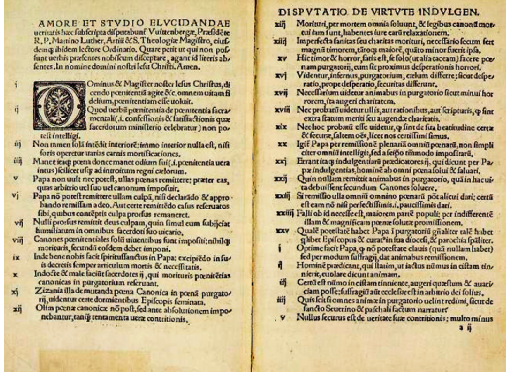 AMORE ET STVDIO ELVCIDANDAE
ueritatis hæc subscripta disputabunť Vuittenbergæ, Præsidēte
R. P. Martino Luther, Artiū & S. Theologiæ Magistro, eius-
dem ibidem lectore Ordinario. Quare petit ut qui non pos
sunt uerbis præsentes nobiscum disceptare, agant id literis ab
sentes. In nomine domini nostri Iesu Christi. Amen.
i DOminus & Magister noster Iesus Christus, di
cendo pœnitentiā agite &c. omnem uitam fi
delium, pœnitentiam esse uoluit.
ij Quod uerbū pœnitentiæ de pœnitentia sacra
mentali, i. confessionis & satisfactionis quæ
sacerdotum ministerio celebratur) non po-
test intelligi.
iij Non tamen solā intēdit interiorē: immo interior nulla est, nisi
foris operetur uarias carnis mortificationes.
iiij Manet itaq; pœna donec manet odium sui, (.i. pœnitentia uera
intus) scilicet usq; ad introitum regni cælorum.
v Papa non uult nec potest, ullas pœnas remittere: præter eas,
quas arbitrio uel suo uel canonum imposuit.
vj Papa nō potest remittere ullam culpā, nisi declarādo & appro
bando remissam a deo, Aut certe remittēdo casus reseruatos
sibi, quibus contēptis culpa prorsus remaneret.
vij Nulli prorsus remittit deus culpam, quin simul eum subijciat
humiliatum in omnibus sacerdoti suo uicario.
viij Canones pœnitentiales solū uiuentibus sunt impositi: nihilq;
morituris, secundū eosdem debet imponi.
ix Inde bene nobis facit spiritussanctus in Papa: excipiēdo in su
is decretis semper articulum mortis & necessitatis.
x Indocte & male faciūt sacerdotes ij, qui morituris pœnitētias
canonicas in purgatorium reseruant.
xj Zizania illa de mutanda pœna Canonica in pœnā purgato
rij, uidentur certe dormientibus Episcopis seminata.
xij Olim pœnæ canonicæ nō post, sed ante absolutionem impo
nebantur, tanq̄ tentamenta ueræ contritionis.
DISPVTATIO DE VIRTVTE INDVLGEN.
xiij Morituri, per mortem omnia soluunt, & legibus canonū mor-
tui iam sunt, habentes iure earū relaxationem.
xiiij Imperfecta sanitas seu charitas morituri, necessario secum fert
magnū timorem, tātoq; maiorē, quāto minor fuerit ipsa.
xv Hic timor & horror, satis est, se solo (ut alia taceam) facere pœ-
nam purgatorij, cum sit proximus desperationis horrori.
xvj Videntur, infernus, purgatorium, cælum differre: sicut despe-
ratio, prope desperatio, securitas differunt.
xvij Necessarium uidetur animabus in purgatorio sicut minui hor-
rorem, ita augeri charitatem.
xviij Nec probatū uidetur ullis, aut rationibus, aut scripturis, q̄ sint
extra statum meriti seu augendæ charitatis.
xix Nec hoc probatū esse uidetur, q̄ sint de sua beatitudine certæ
& securæ, saltem oēs, licet nos certissimi simus.
xx Igiť Papa per remissionē plenariā omniū pœnarū, non simplici
citer omniū intelligit, sed a seipso tātūmodo impositarū.
xxj Errant itaq; indulgentiarū prædicatores ij, qui dicunt per Pa-
pæ indulgentias, hominē ab omni pœna solui & saluari.
xxij Quin nullam remittit animabus in purgatorio, quā in hac ui-
ta debuissent secundum Canones soluere.
xxiij Si remissio ulla omniū omnino pœnarū pōt alicui dari: certū
est eam nō nisi perfectissimis, i. paucissimis dari.
xxiiij Falli ob id necesse est, maiorem partē populi: per indifferentē
illam & magnificam pœnæ solutæ promissionem.
xxv Qualē potestatē habet Papa ī purgatoriū gñaliter talē habet
quilibet Episcopus & curatꝰ in sua diocesi, & parochia spāliter.
i Optime facit Papa, q̄ nō potestate clauis (quā nullam habet)
sed per modum suffragij, dat animabus remissionem.
ij Hominē prædicant, qui statim, ut iactus nūmus in cistam tin-
nierit, euolare dicunt animam.
iij Certū est nūmo in cistam tinniente, augeri quæstum & auari
ciam posse: suffragiū aūt ecclesiæ est in arbitrio dei solius.
iiij Quis scit si omnes animæ in purgatorio uelint redimi, sicut de
sancto Seuerino & paschali factum narratur
v Nullus securus est de ueritate suæ contritionis; multo minus
a ij